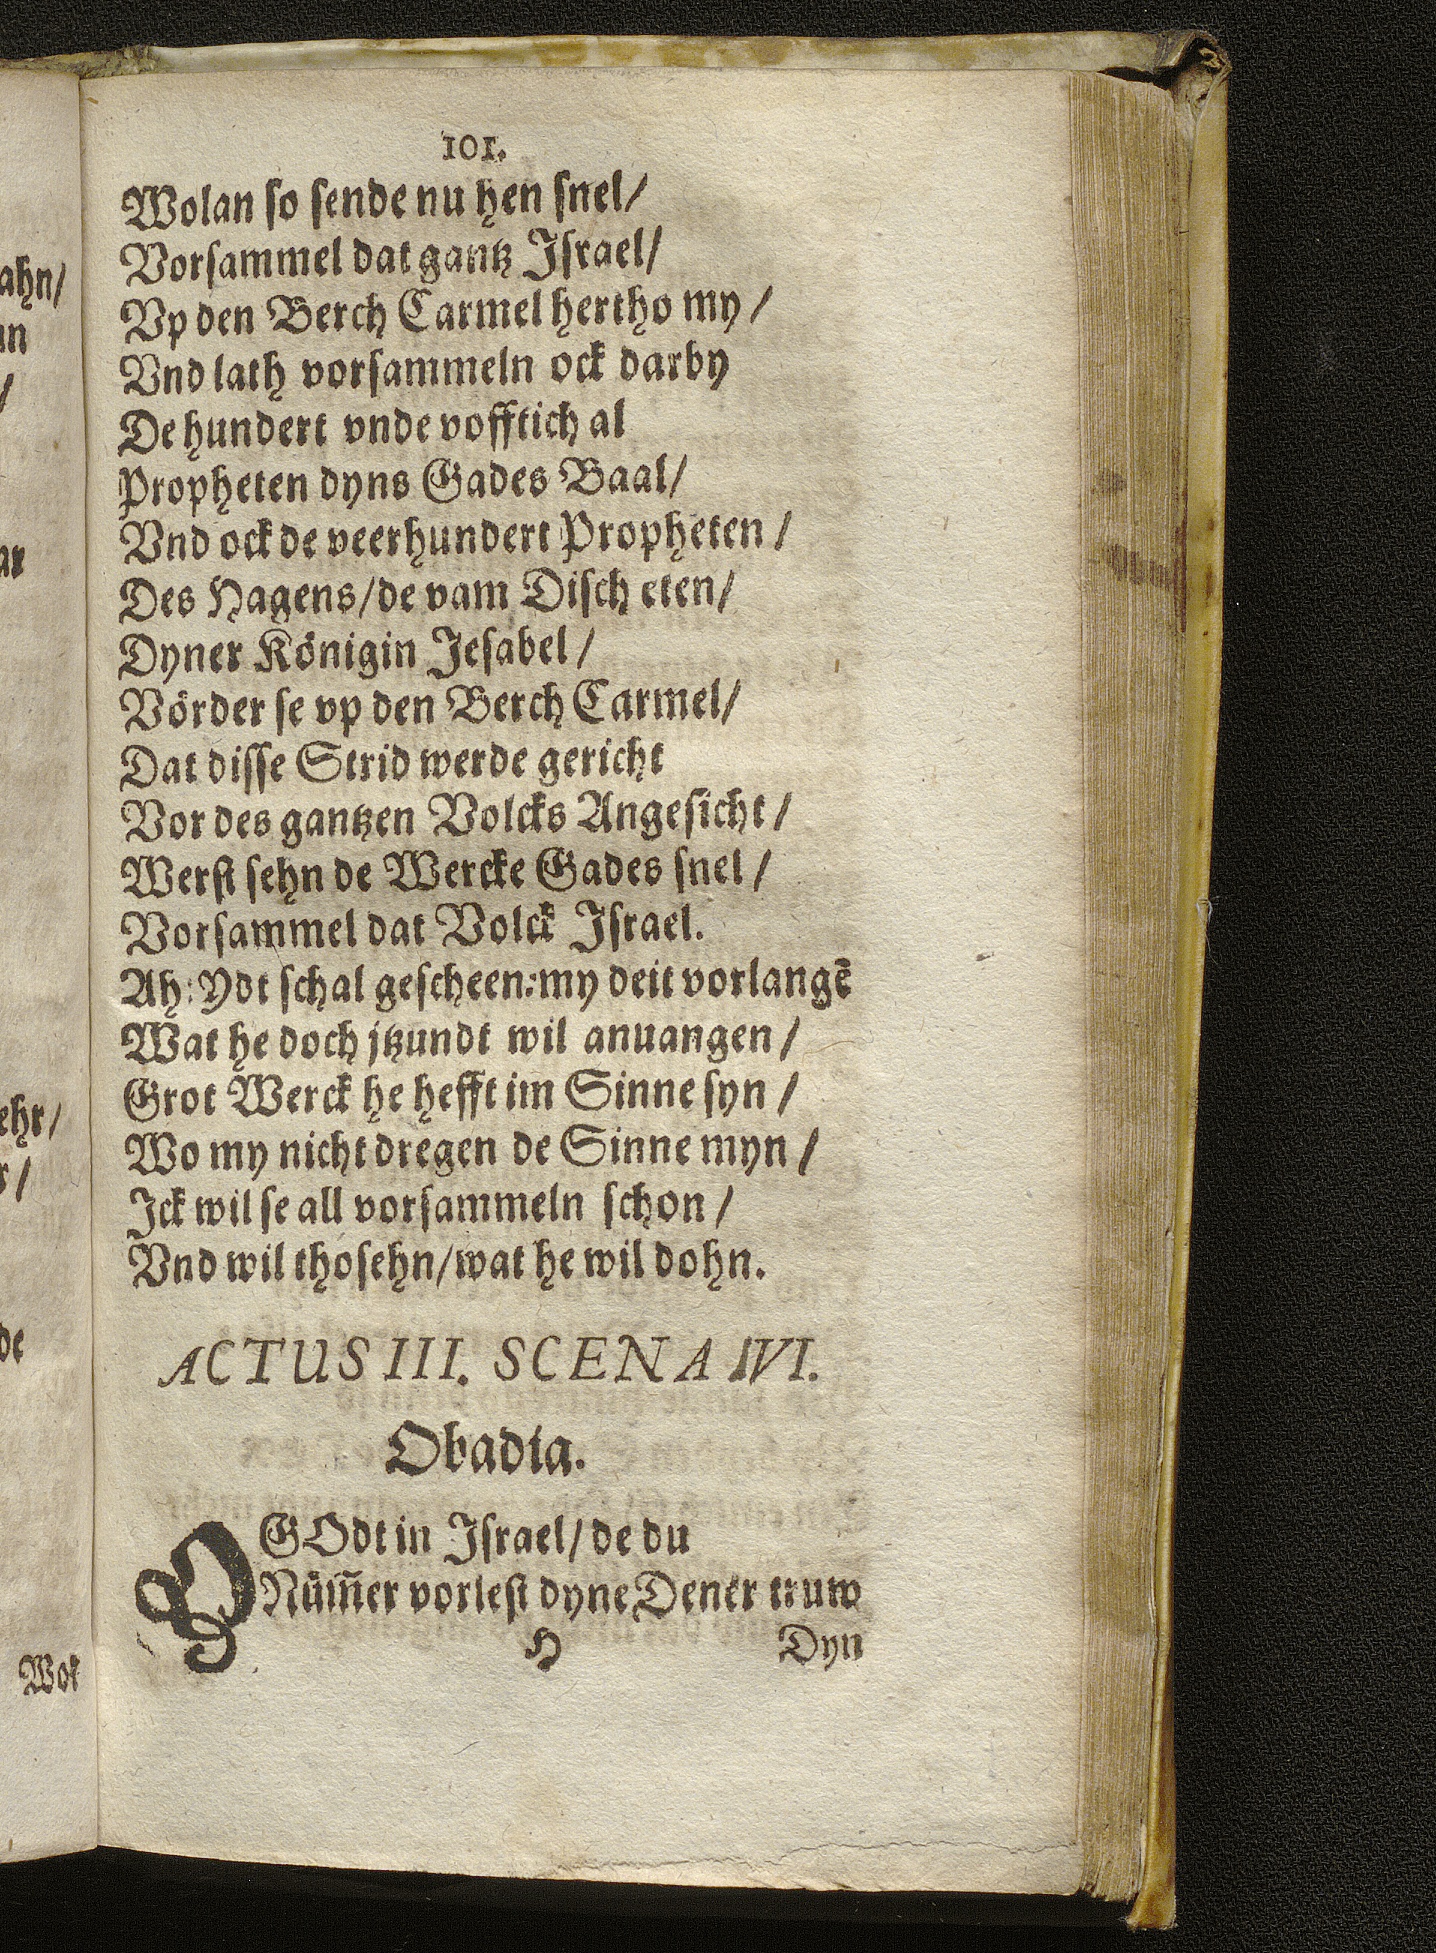 101.
Wolan so sende nu hen snel/
Vorsammel dat gantz Israel/
Vp den Berch Carmel hertho my/
Vnd lath vorsammeln ock darby
De hundert vnde vofftich al
Propheten dyns Gades Baal/
Vnd ock de veerhundert Propheten/
Des Hagens/de vam Disch eten/
Dyner Königin Jesabel/
Vörder se vp den Berch Carmel/
Dat disse Strid werde gericht
Vor des gantzen Volcks Angesicht/
Werst sehn de Wercke Gades snel/
Vorsammel dat Volck Israel.
Ah: Ydt schal gescheen: my deit vorlangē
Wat he doch jtzundt wil anuangen/
Grot Werck he hefft im Sinne syn/
Wo my nicht dregen de Sinne myn/
Ick wil se all vorsammeln schon/
Vnd wil thosehn/wat he wil dohn.
ACTUS III. SCENA IVI.
Obadia.
O GOdt in Israel/de du
Nüm̃er vorlest dyne Dener truw
H Dyn
ahn/
ar
ehr/
r/
de